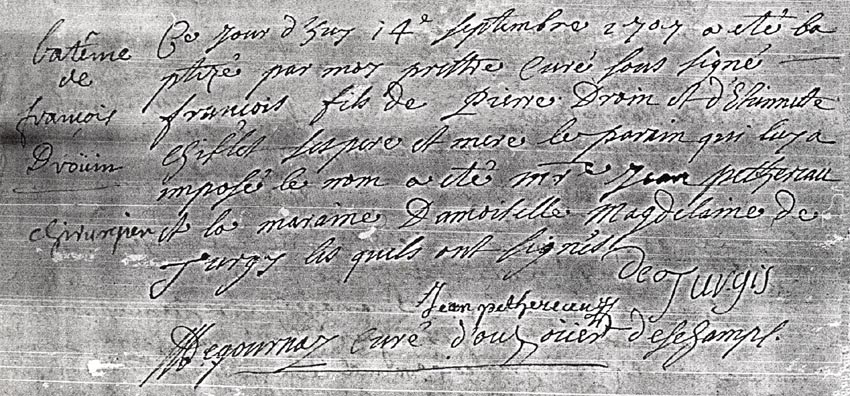 batême
de
françois
Droüin
chirurgien
Ce Jour d'huy 14e septembre 1707 a eté ba
ptizé par moy prettre curé sous signé
françois fils de Pierre Droin et d'Etiennette
Chiflet ses pere et mere le parain qui luy a
imposé le nom a eté mre Jean pethereau
et la maraine Damoiselle Magdelaine de
Turgy les quels ont signés
de Turgis
Jean pethereau
Degournay curé d'ouzouier deschamps.